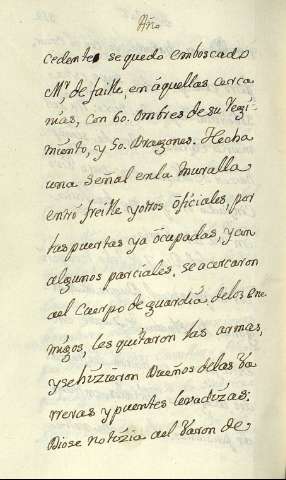 Año
cedente se quedo emboscado
Mr. de faille, en aquellas cerca
nias, con 60. ombres de su Regi
miento, y 50. Dragones. Hecha
una señal en la muralla
entró freille y otros ôficiales, por
las puertas ya ôcupadas, y con
algunos parciales, se acercaron
al Cuerpo de guardia, de los ene
migos, les quitaron las armas,
y se hizieron Dueños de las Va
rreras y puentes levadizas.
Diose notizia al Varon de